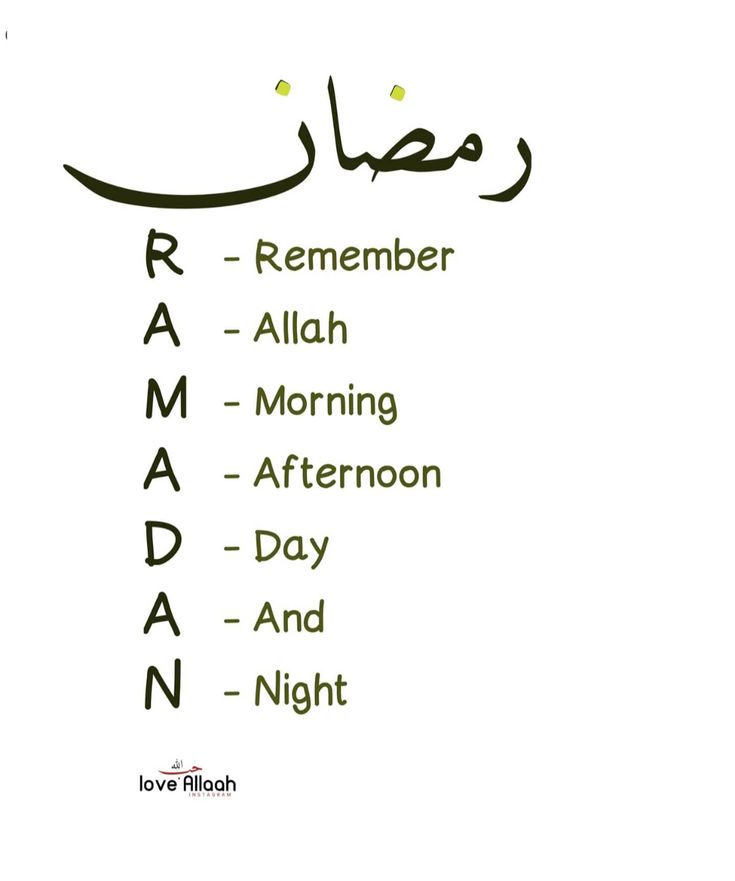 رمضان
R - Remember
A - Allah
M - Morning
A - Afternoon
D - Day
A - And
N - Night
حب الله
love Allaah
INSTAGRAM